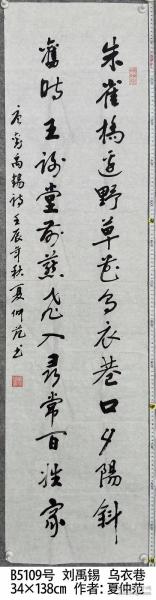 朱雀橋邊野草花烏衣巷口夕陽斜
舊時王謝堂前燕飛入尋常百姓家
唐劉禹錫詩壬辰年秋夏仲范书
B5109号 刘禹锡 乌衣巷
34×138cm 作者:夏仲范